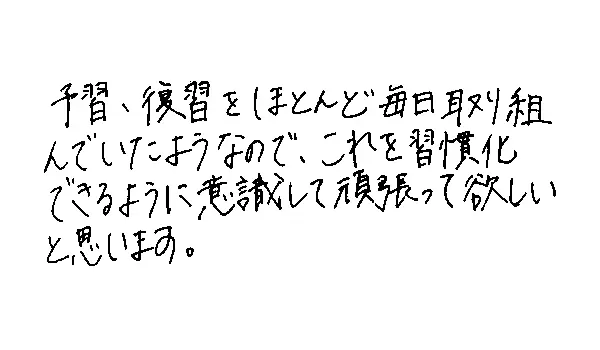 予習、復習をほとんど毎日取り組
んでいたようなので、これを習慣化
できるように意識して頑張って欲しい
と思います。